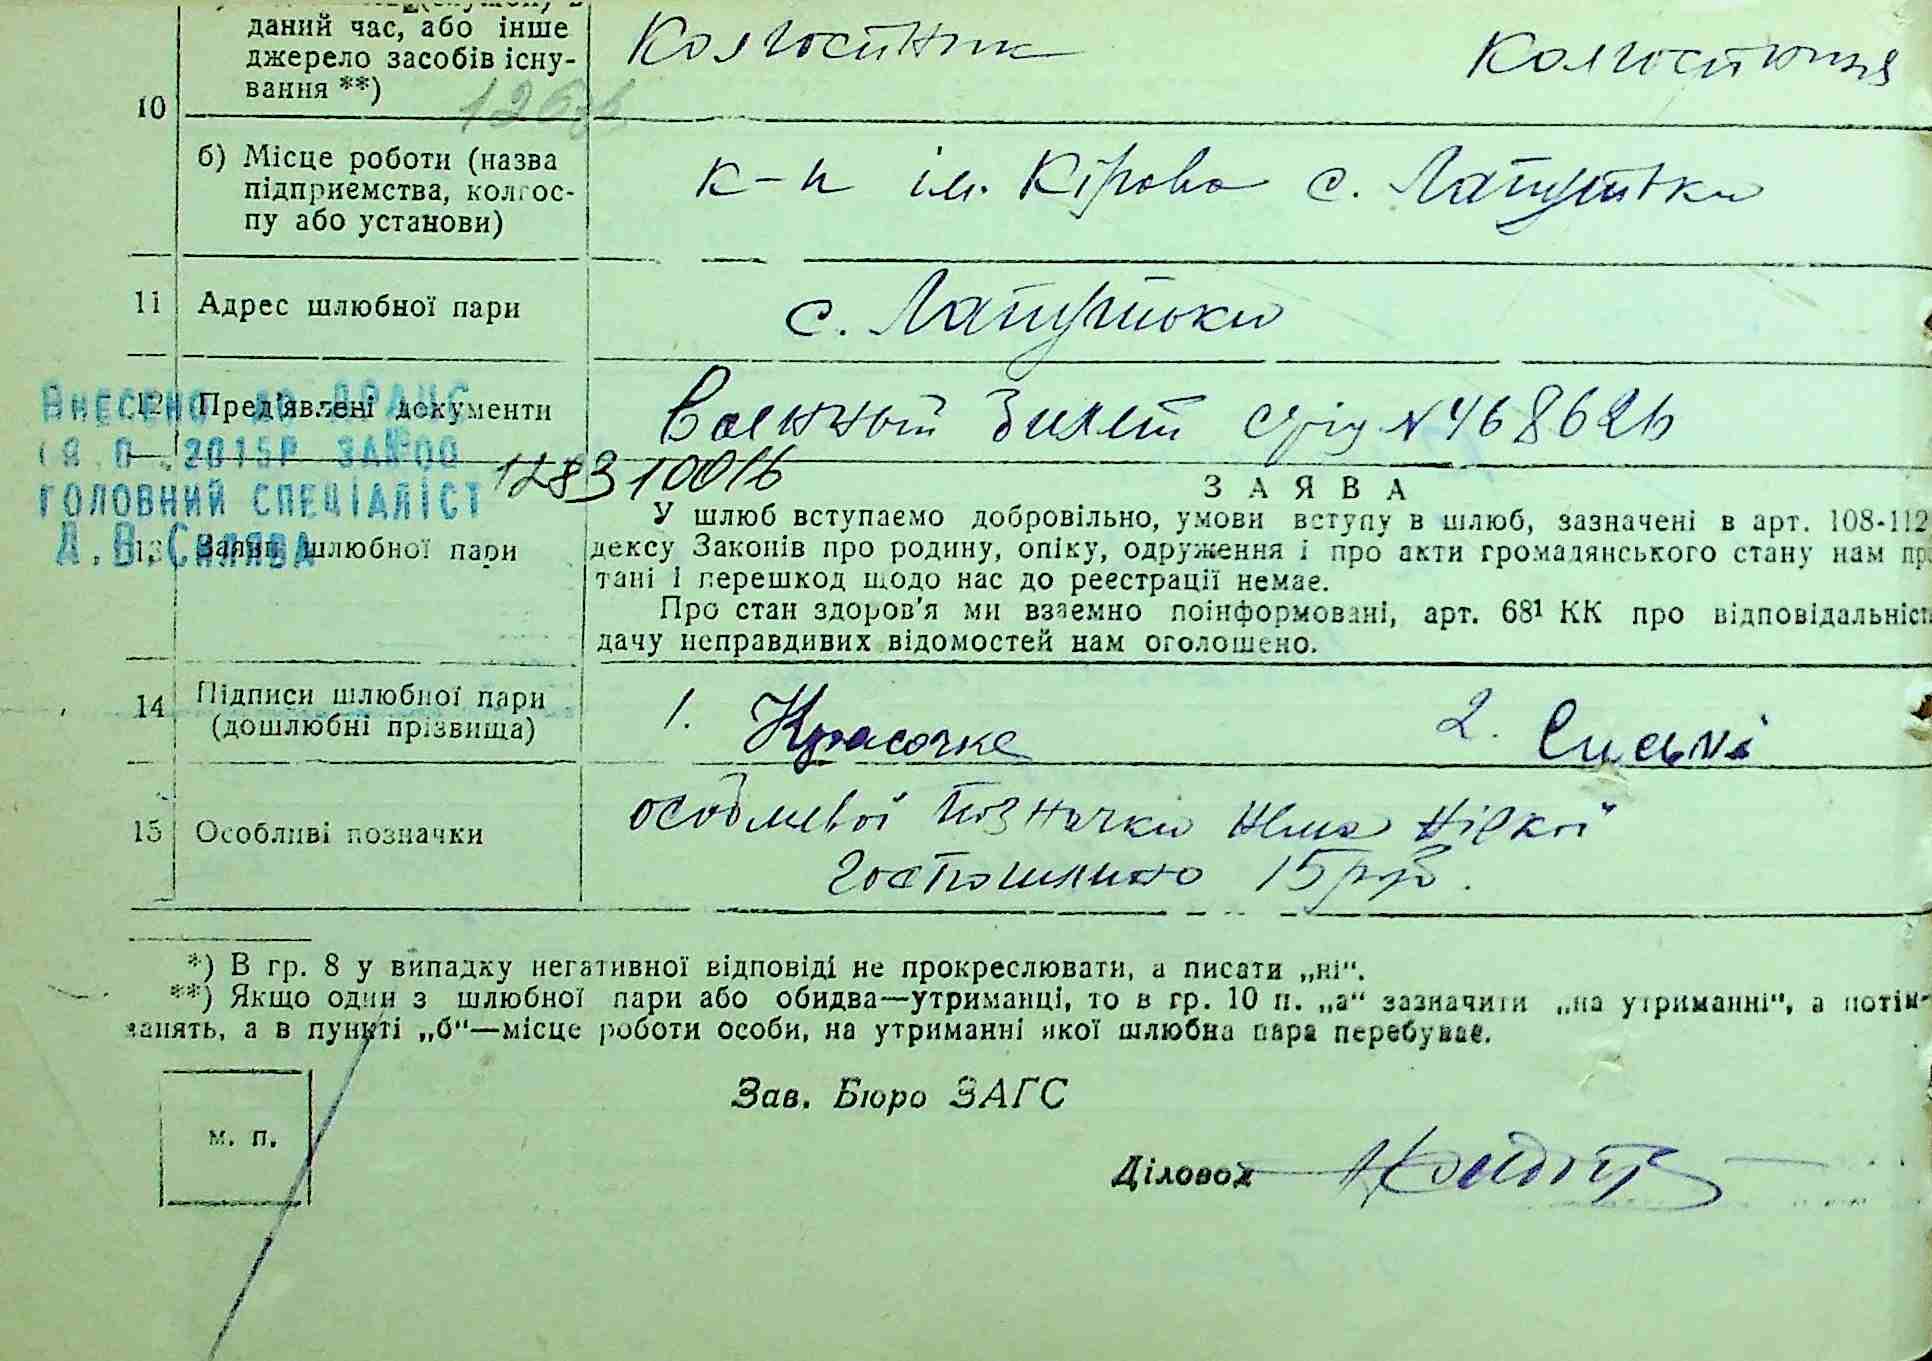 даний час, або інше
джерело засобів існу-
вання **)
Колгоспник Колгоспниця
10
б) Місце роботи (назва
підприємства, колгос-
пу або установи)
к-п ім. Кірова с. Лапутьки
11 Адрес шлюбної пари
с. Лапутьки
12 Пред'явлені документи
Военный билет серія №
ВНЕСЕНО ДО ДРАЦС
ГОЛОВНИЙ СПЕЦІАЛІСТ
128310016
ЗАЯВА
13 Заява шлюбної пари
У шлюб вступаємо добровільно, умови вступу в шлюб, зазначені в арт. 108-112
дексу Законів про родину, опіку, одруження і про акти громадянського стану нам
тані і перешкод щодо нас до реєстрації немає.
Про стан здоров'я ми взаємно поінформовані, арт. 68¹ КК про відповідальніс
дачу неправдивих відомостей нам оголошено.
14 Підписи шлюбної пари
(дошлюбні прізвища)
1. Красочка 2.
15 Особливі позначки
особливої позначки нема
госпошлиною 15 руб.
*) В гр. 8 у випадку негативної відповіді не прокреслювати, а писати „ні".
**) Якщо один з шлюбної пари або обидва—утриманці, то в гр. 10 п. „а" зазначити „на утриманні", а потім
занять, а в пункті „б"—місце роботи особи, на утриманні якої шлюбна пара перебуває.
Зав. Бюро ЗАГС
м. п.
Діловод